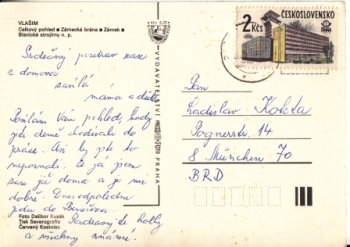 VLAŠIM
Celkový pohled ● Zámecká brána ● Zámek ●
Blanické strojírny n. p.
Srdečný pozdrav zase
z domova
zasílá
máma a děda
Posílám Vám pohled, kudy
jste doma chodívali do
práce. Asi by jste to
nepoznali. Já jsem
zase již doma a je mi
dobře. Dnes odpoledne
jedu do Benešova.
Pozdravujte holky
a všechny známé.
Foto Dalibor Kusák
Tisk Severografia
Červený Kostelec
VYDAVATELSTVÍ PRESSFOTO PRAHA
2 Kčs
ČESKOSLOVENSKO
Pan
Ladislav
Pognerstr. 14
8 München 70
BRD